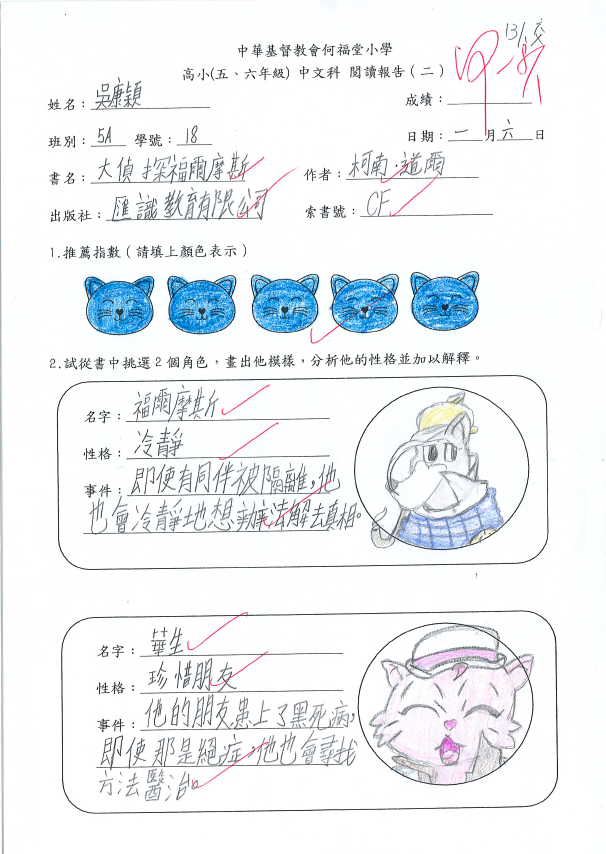 13/1交
中華基督教會何福堂小學
高小(五、六年級) 中文科 閱讀報告(二)
甲
姓名：吳康穎 成績：
班別：5A 學號：18 日期：一月六日
書名：大偵探福爾摩斯 作者：柯南·道爾
出版社：匯識教育有限公司 索書號：CF
1.推薦指數(請填上顏色表示)
2.試從書中挑選2個角色，畫出他模樣，分析他的性格並加以解釋。
名字：福爾摩斯
性格：冷靜
事件：即使有同伴被隔離，他
也會冷靜地想辦法解去真相。
1
名字：華生
性格：珍惜朋友
事件：他的朋友患上了黑死病，
即使那是絕症，他也會尋找
方法醫治。